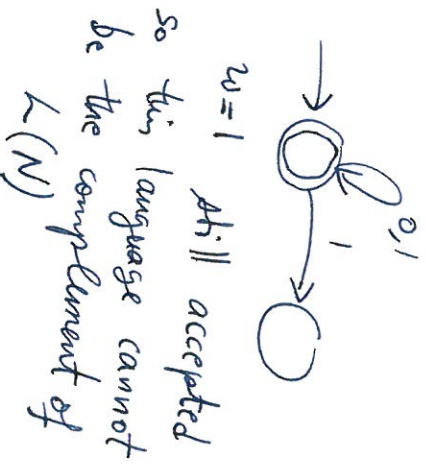 0,1
1
w=1 still accepted
so this language cannot
be the complement of
L(N)